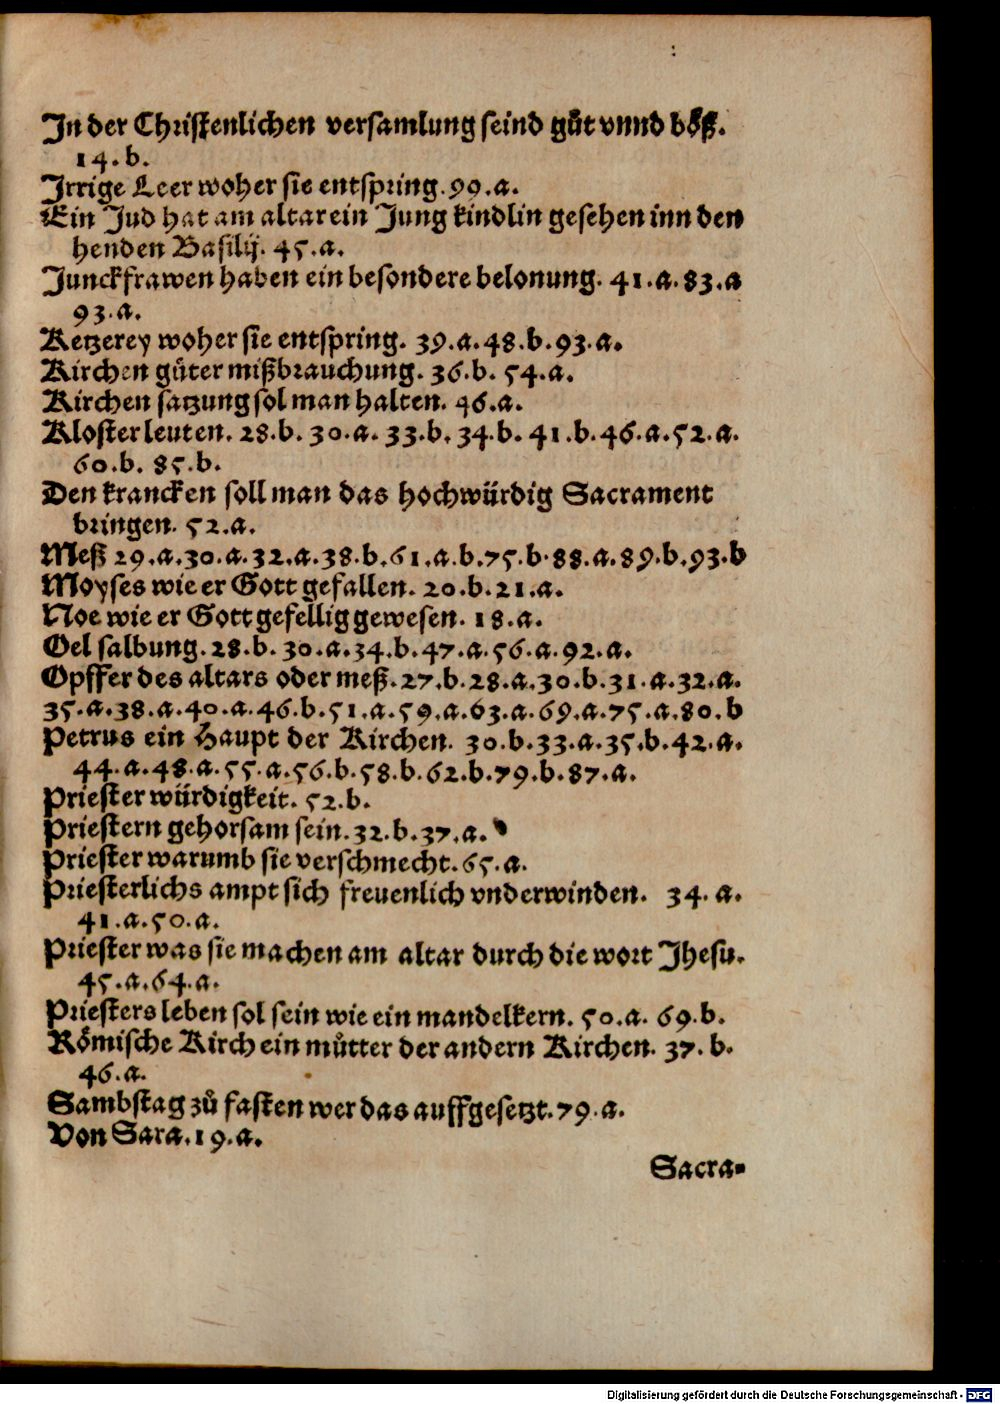 In der Christenlichen versamlung seind gůt vnnd böß.
14.b.
Irrige Leer woher sie entspring. 99.a.
Ein Jud hat am altar ein Jung kindlin gesehen inn den
henden Basilij. 45.a.
Junckfrawen haben ein besondere belonung. 41.a.83.a
93.a.
Ketzerey woher sie entspring. 39.a.48.b.93.a.
Kirchen gůter mißbrauchung. 36.b. 54.a.
Kirchen satzung sol man halten. 46.a.
Klosterleuten. 28.b. 30.a. 33.b. 34.b. 41.b.46.a.52.a.
60.b. 85.b.
Den krancken soll man das hochwürdig Sacrament
bringen. 52.a.
Meß 29.a.30.a.32.a.38.b.61.a.b.75.b.88.a.89.b.93.b
Moyses wie er Gott gefallen. 20.b.21.a.
Noe wie er Gott gefellig gewesen. 18.a.
Oel salbung. 28.b. 30.a.34.b.47.a.56.a.92.a.
Opffer des altars oder meß. 27.b.28.a.30.b.31.a.32.a.
35.a.38.a.40.a.46.b.51.a.59.a.63.a.69.a.75.a.80.b
Petrus ein Haupt der Kirchen. 30.b.33.a.35.b.42.a.
44.a.48.a.55.a.56.b.58.b.62.b.79.b.87.a.
Priester würdigkeit. 52.b.
Priestern gehorsam sein. 32.b.37.a.
Priester warumb sie verschmecht. 65.a.
Priesterlichs ampt sich freuenlich vnderwinden. 34.a.
41.a.50.a.
Priester was sie machen am altar durch die wort Jhesu.
45.a.64.a.
Priesters leben sol sein wie ein mandelkern. 50.a. 69.b.
Römische Kirch ein můtter der andern Kirchen. 37.b.
46.a.
Sambstag zů fasten wer das auffgesetzt. 79.a.
Von Sara. 19.a.
Sacra-
Digitalisierung gefördert durch die Deutsche Forschungsgemeinschaft - DFG